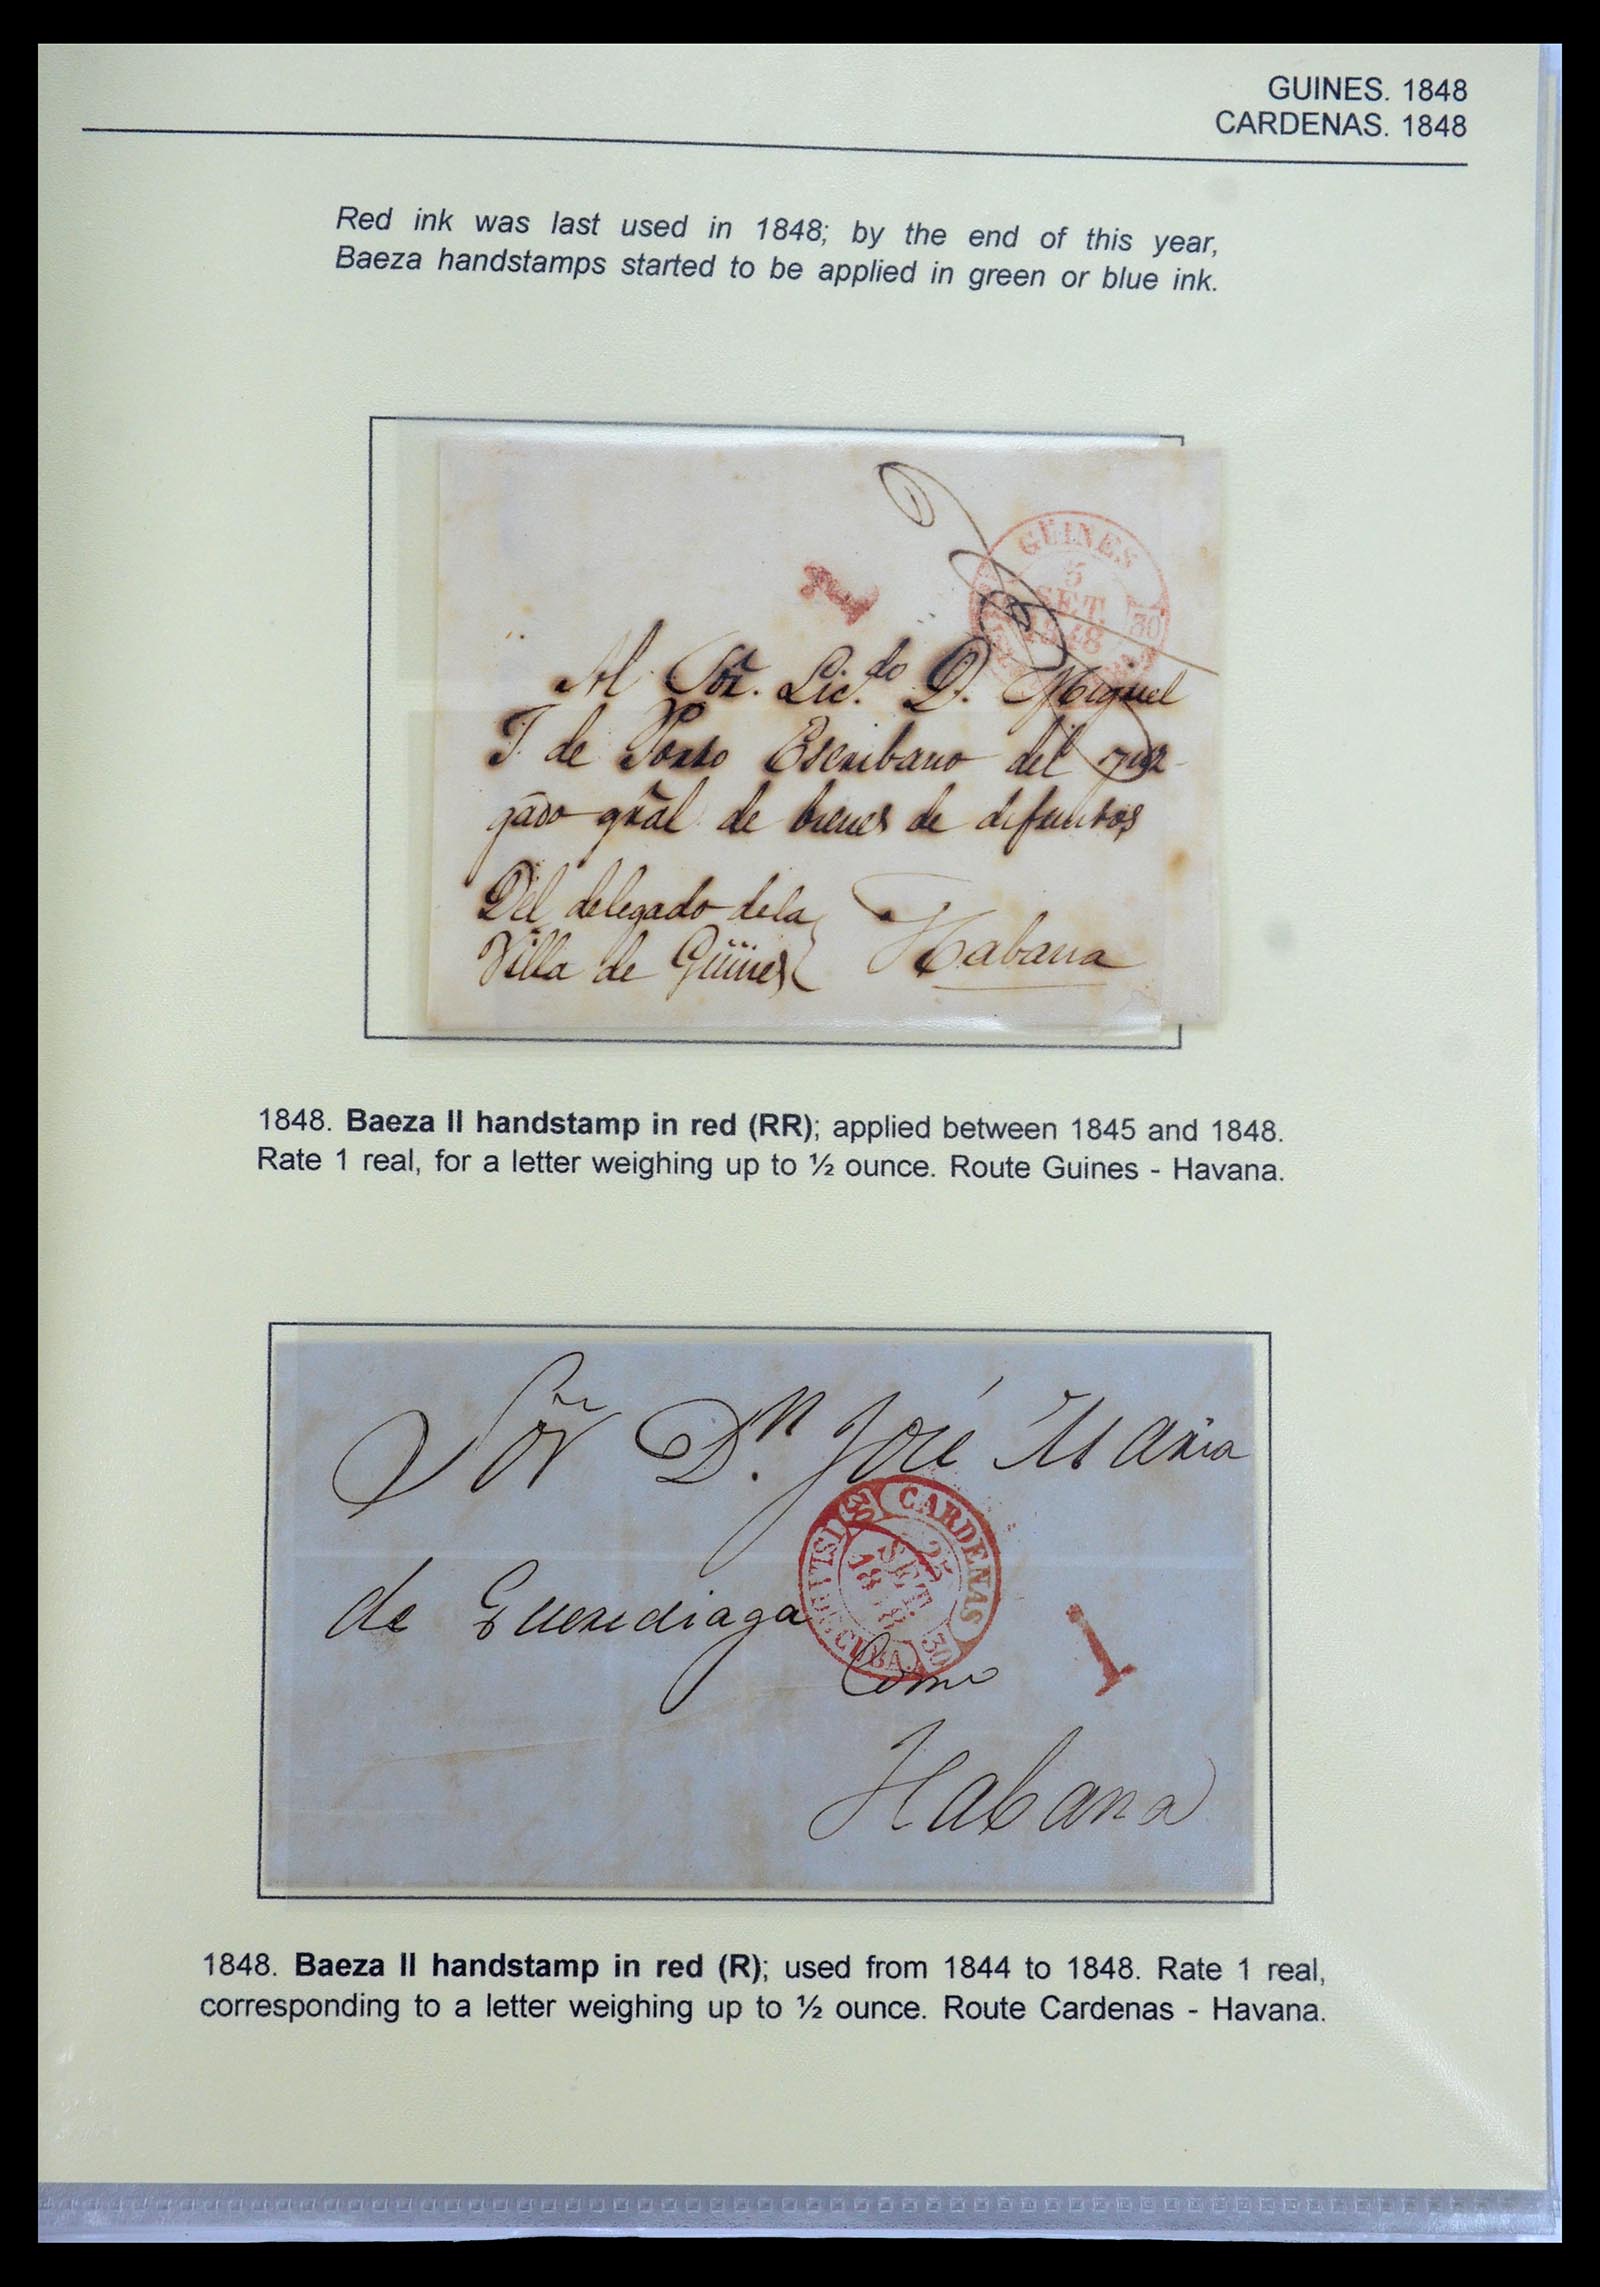 GUINES. 1848
CARDENAS. 1848
Red ink was last used in 1848; by the end of this year,
Baeza handstamps started to be applied in green or blue ink.
GÜINES
5
SET.
1848
30
1
Al Sor. Lic.do D. Miguel
T. de Porto Escribano del Juz-
gado gral de bienes de difuntos
Del delegado de la
Villa de Güines
Habana
1848. Baeza II handstamp in red (RR); applied between 1845 and 1848.
Rate 1 real, for a letter weighing up to ½ ounce. Route Guines - Havana.
Sor Dn. José Maria
de Guerediaga
Habana
CARDENAS
25
SET.
1848
30
ISLA DE CUBA.
1
1848. Baeza II handstamp in red (R); used from 1844 to 1848. Rate 1 real,
corresponding to a letter weighing up to ½ ounce. Route Cardenas - Havana.